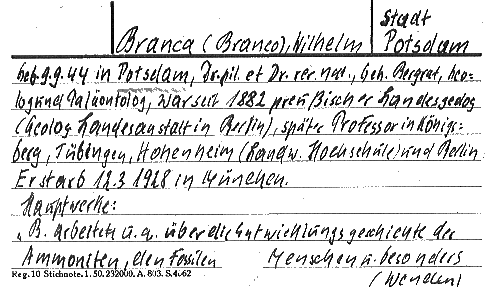 Stadt
Branca (Branco), Wilhelm Potsdam
geb. 9.9.44 in Potsdam, Dr. phil. et Dr. rer. nat., Geh. Bergrat, Geo-
log und Paläontolog, war seit 1882 preußischer Landesgeolog
(Geolog. Landesanstalt in Berlin), später Professor in Königs-
berg, Tübingen, Hohenheim (Landw. Hochschule) und Berlin
Er starb 12.3.1928 in München.
Hauptwerke:
„B. arbeitete u. a. über die Entwicklungsgeschichte der
Ammoniten, den fossilen Menschen u. besonders
Reg. 10 Stichnote. 1. 50. 232000. A. 803. S. 4.-62
(wenden)